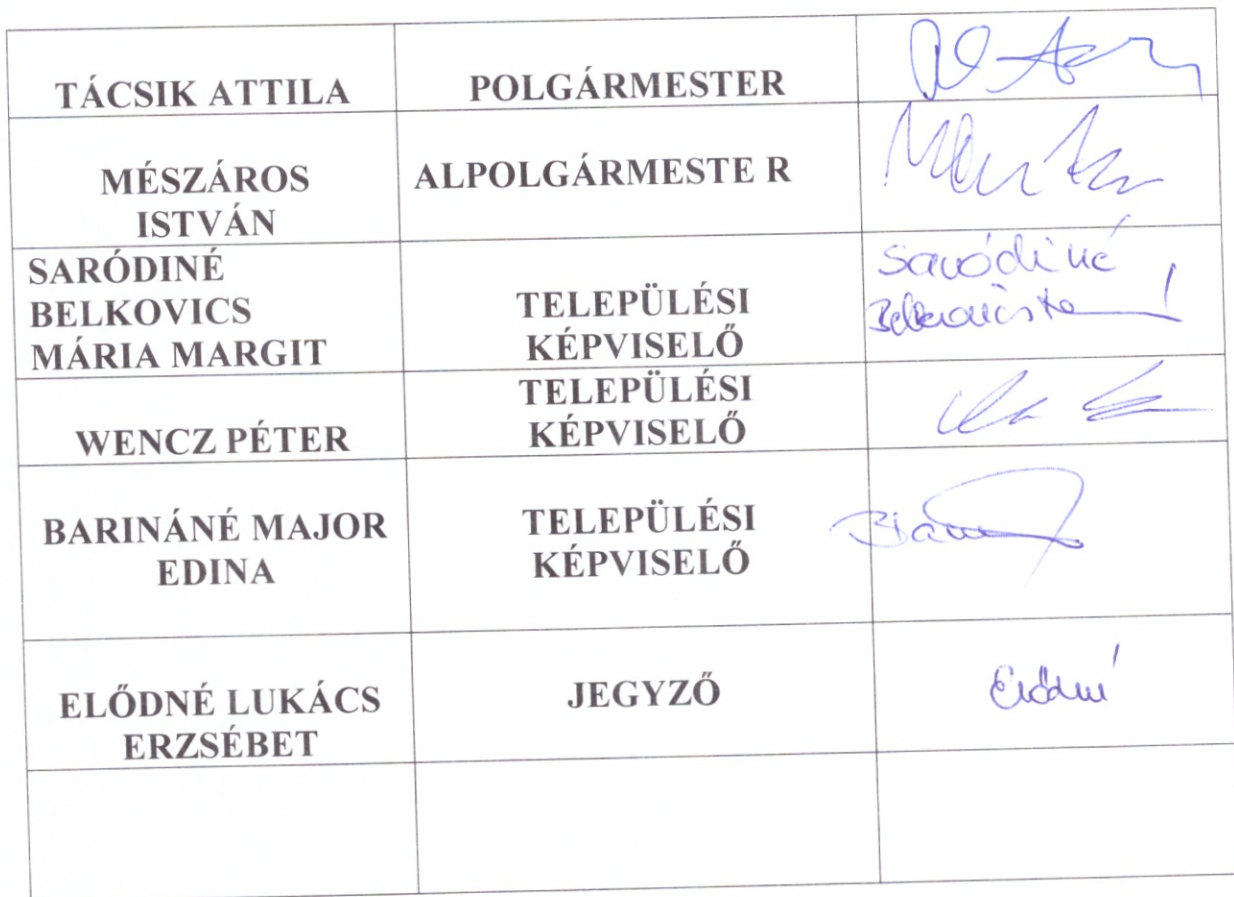 TÁCSIK ATTILA
POLGÁRMESTER
MÉSZÁROS
ISTVÁN
ALPOLGÁRMESTE R
SARÓDINÉ
BELKOVICS
MÁRIA MARGIT
TELEPÜLÉSI
KÉPVISELŐ
Saródiné
WENCZ PÉTER
TELEPÜLÉSI
KÉPVISELŐ
BARINÁNÉ MAJOR
EDINA
TELEPÜLÉSI
KÉPVISELŐ
ELŐDNÉ LUKÁCS
ERZSÉBET
JEGYZŐ
Elődné